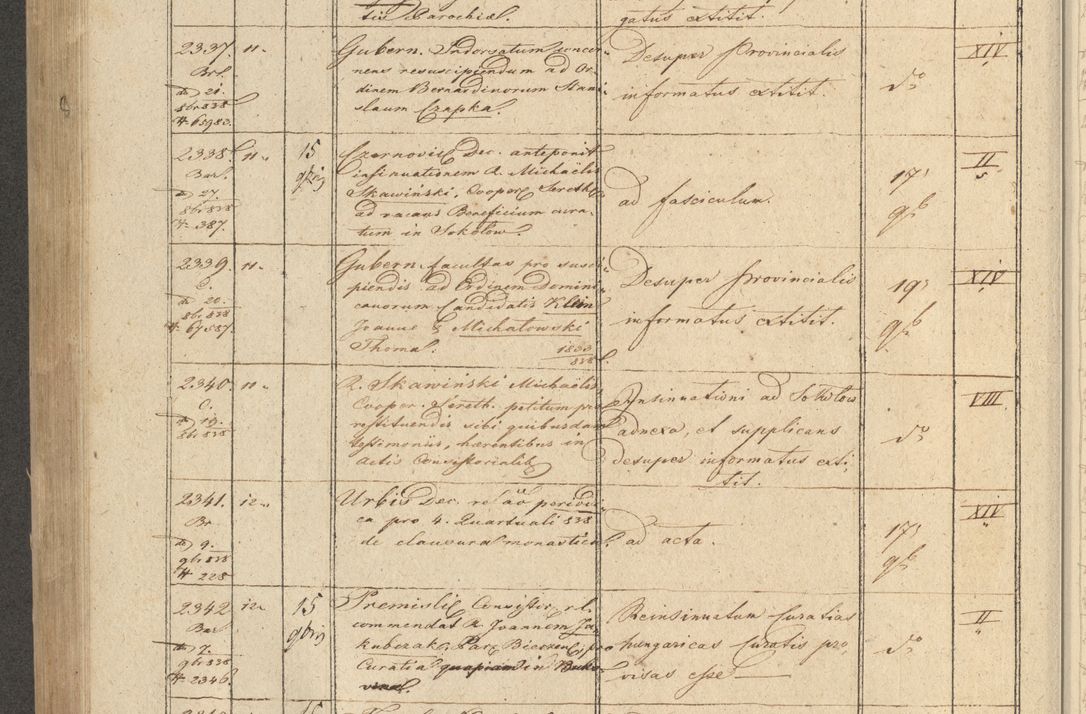 tis Parochiæ.
gatus extitit.
2337. 11.
Gubern. Indorsatum concer-
nens resuscipiendum ad Or-
dinem Bernardinorum Stani-
slaum Czapka.
Desuper Provincialis
informatus extitit.
do
XIV
Brl.
dto 21.
8br 838
# 65980.
2338. 11.
15
9bris
Czernovic Dec. anteponit
insinuationem R. Michaëlis
Skawiński, Cooper. Sereth.
ad vacans Beneficium cura-
tum in Sokolow.
ad fasciculum.
17
9b
II
Bar.
dto 27.
8br 838
# 387.
2339. 11.
Gubern. facultas pro susci-
piendis ad Ordinem Domini-
canorum Candidatis Klein
Joanne & Michałowski
Thoma.
1803
838
Desuper Provincialis
informatus extitit.
19
9b
XIV
C.
dto 20.
8br 838
# 67587
2340. 11.
R. Skawiński Michaëlis
Cooper. Sereth. petitum pro
restituendis sibi quibusdam
testimoniis, hærentibus in
Actis Consistorialib
Insinuationi ad Sokolow
adnexa, et supplicans
desuper informatus exti-
tit.
do
VIII
C.
dto 19.
8br 838
2341. 12.
Urbis Dec. relao periodi-
ca pro 4. Quartuali 838
de clausura monastica.
ad acta.
17
9b
XIV
Br
dto 9.
9br 838
# 228
2342 12.
15
9bris
Premislic Consistor. rl.
commendat R. Joannem Ja-
kubczak, Par. pro
Curatia quapiam in Buko-
vina.
Reinsinuatum Curatias
hungaricas Curatis pro-
visas esse
do
II
Bar
dto 7.
9br 838
# 2346.